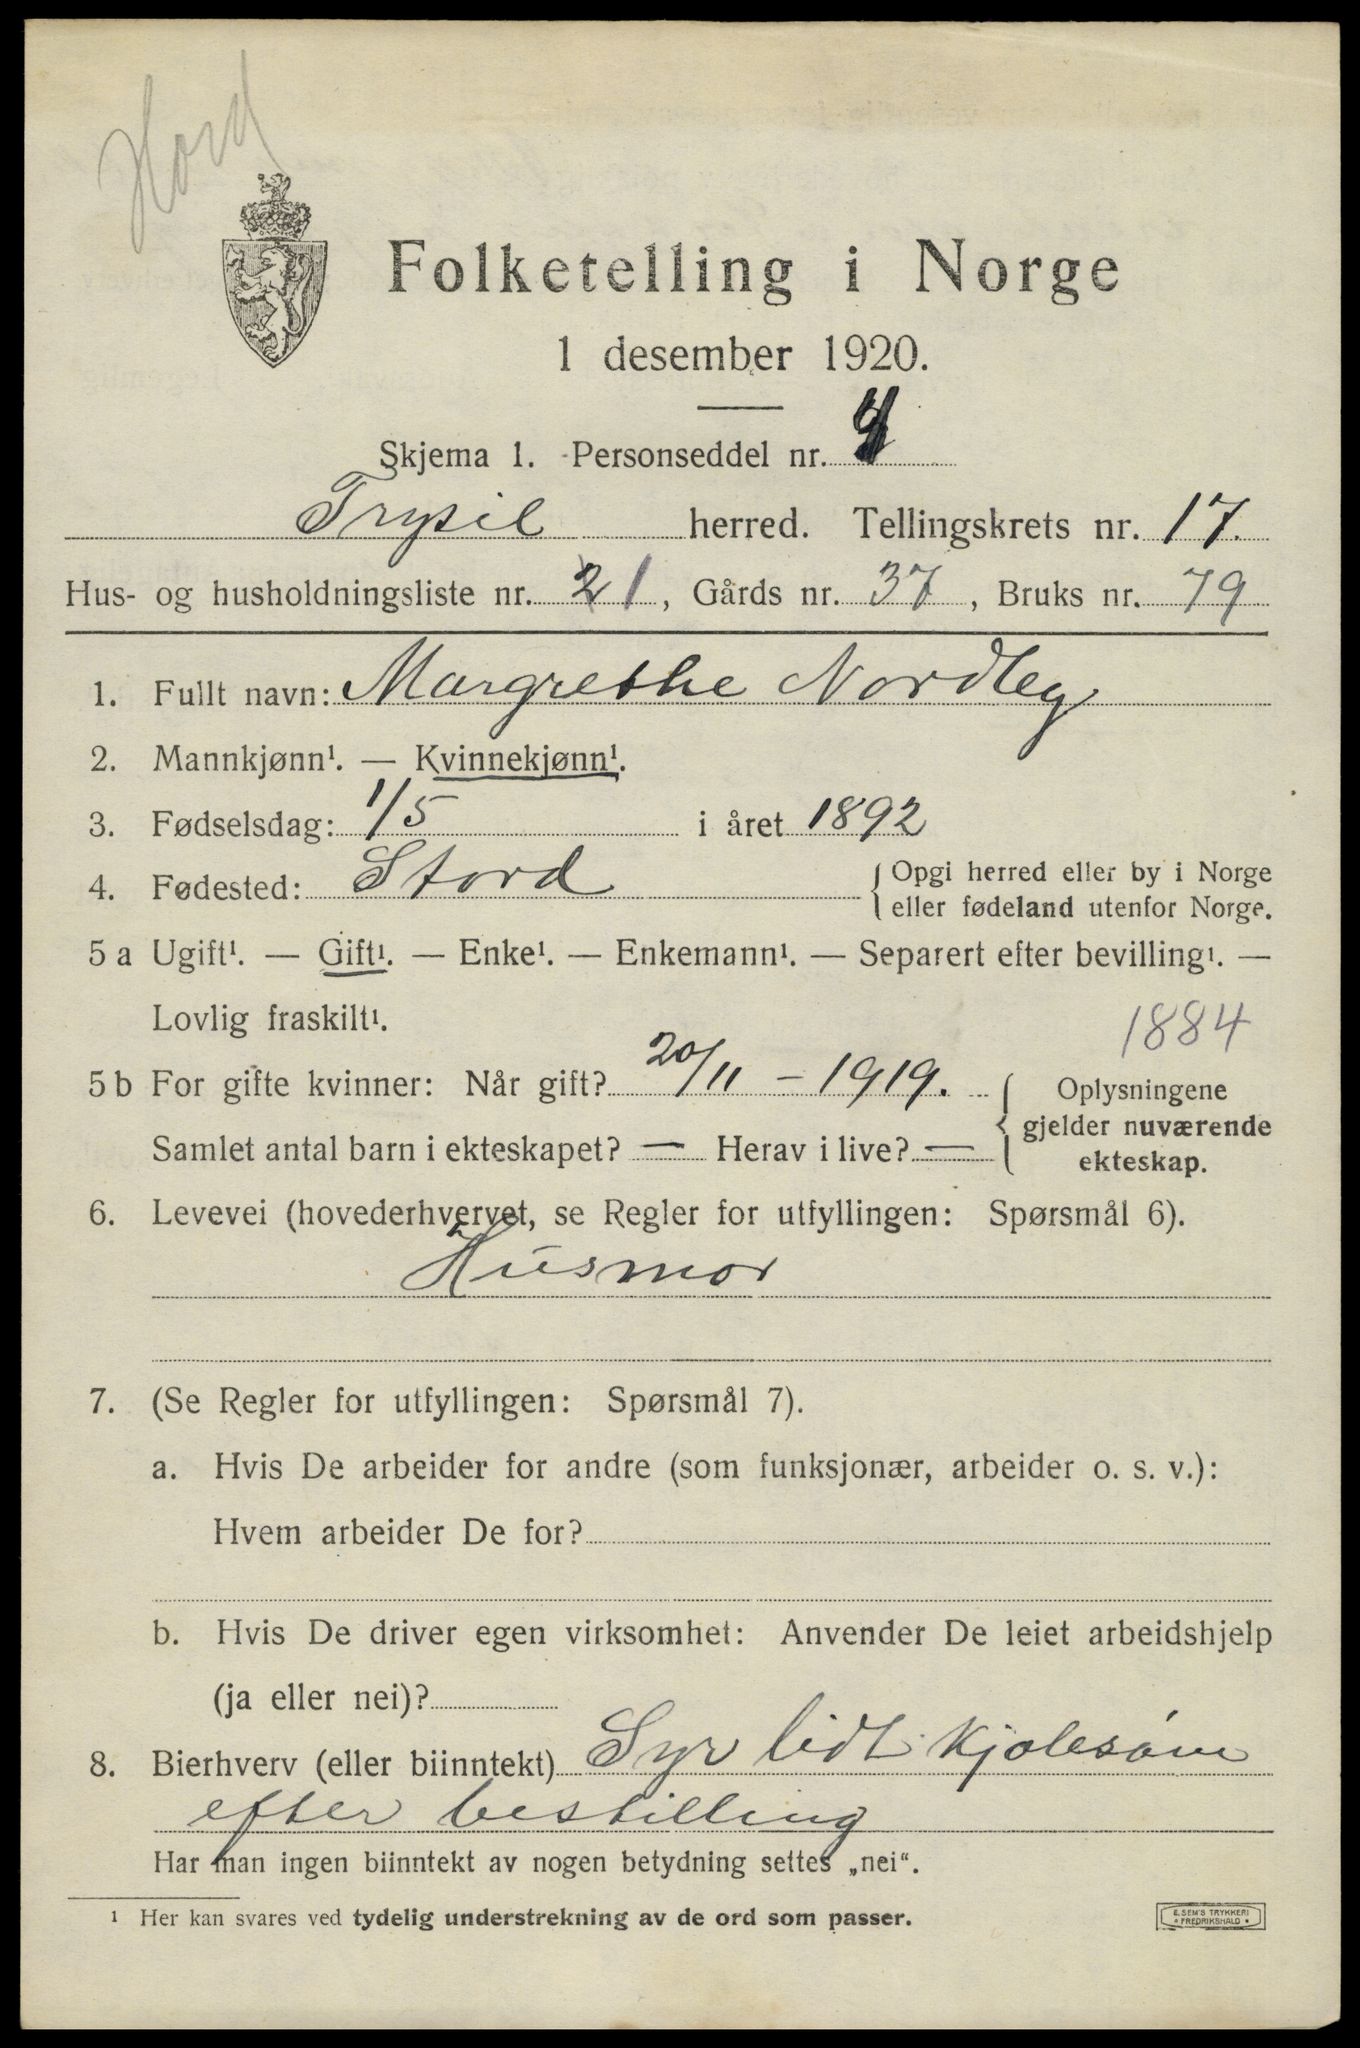 Hord
Folketelling i Norge
1 desember 1920.
Skjema 1. Personseddel nr. 4
Trysil herred. Tellingskrets nr. 17.
Hus- og husholdningsliste nr. 21, Gårds nr. 37, Bruks nr. 79
1. Fullt navn: Margrethe Nordleg
2. Mannkjønn¹. — Kvinnekjønn¹.
3. Fødselsdag: 1/5 i året 1892
4. Fødested: Stord {Opgi herred eller by i Norge
eller fødeland utenfor Norge.
5 a Ugift¹. — Gift¹. — Enke¹. — Enkemann¹. — Separert efter bevilling¹. —
Lovlig fraskilt¹.
1884
5 b For gifte kvinner: Når gift? 20/11 – 1919. {Oplysningene
gjelder nuværende
Samlet antal barn i ekteskapet? — Herav i live? —
ekteskap.
6. Levevei (hovederhvervet, se Regler for utfyllingen: Spørsmål 6).
Husmor
7. (Se Regler for utfyllingen: Spørsmål 7).
a. Hvis De arbeider for andre (som funksjonær, arbeider o. s. v.):
Hvem arbeider De for?
b. Hvis De driver egen virksomhet: Anvender De leiet arbeidshjelp
(ja eller nei)?
8. Bierhverv (eller biinntekt) Syr lidt kjolesøm
efter bestilling
Har man ingen biinntekt av nogen betydning settes „nei“.
¹ Her kan svares ved tydelig understrekning av de ord som passer.
E. SEM'S TRYKKERI
• FREDRIKSHALD •